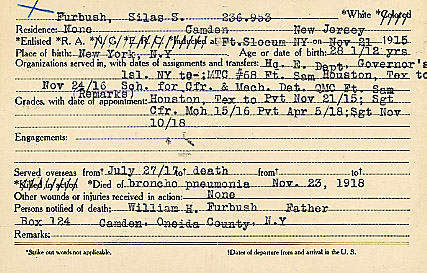 Furbush, Silas S. 236.953 *White *Colored
Residence: None Camden New Jersey
*Enlisted *R. A. *N. G. *E. R. C. *Inducted at Ft.Slocum NY on Nov 21 1915
Place of birth: New York, N.Y Age or date of birth: 28 1/2 yrs
Organizations served in, with dates of assignments and transfers: Hq. E. Dept, Governor's
Isl. NY to-; MTC #68 Ft. Sam Houston, Tex to
Nov 24/16 Sch. for Cfr. & Mach. Det. QMC Ft. Sam
(Remarks)
Grades, with date of appointment: Houston, Tex to Pvt Nov 21/15; Sgt
Cfr. Mch 15/16 Pvt Apr 5/18; Sgt Nov
10/18
Engagements:
Served overseas from† July 27/17 to† death from† to†
*Killed in action *Died of broncho pneumonia Nov. 23, 1918
Other wounds or injuries received in action: None
Persons notified of death: William H. Furbush Father
Box 124 Camden, Oneida County, N.Y
Remarks:
*Strike out words not applicable. †Dates of departure from and arrival in the U. S.